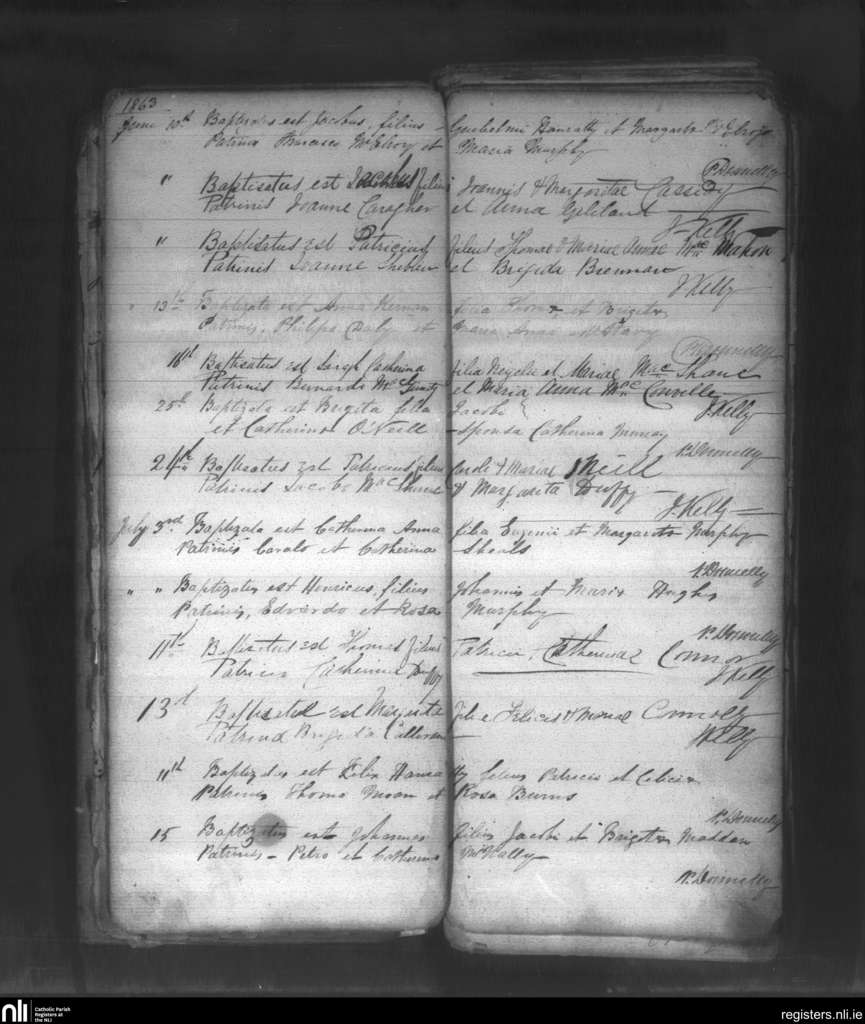 1863
June 10th Baptizatus est Jacobus, filius Gulielmi Hanratty et Margarita McElroy
Patrini McElroy et Maria Murphy
P. Donnelly
" Baptisatus est Jacobus filius Joannis & Margaritae Cassidy
Patrinis Joanne Caragher et Anna Gililand
J. Kelly
" Baptisatus est Patricius filius Thomae & Mariae Annae McMahon
Patrinis Joanne Sheban et Brigida Brennan
J Kelly
" 13th Baptizata est Anna filia Thoma et Brigita
Patrinis, Philipo Daly et Maria Anna
P. Donnelly
18th Baptisatus est Sarah Catherina filia et Mariae MacShane
Patrinis Bernardo Mc et Maria Anna McConville
J. Kelly
25th Baptizata est Brigita filia Jacobi
et Catherina O'Neill Sponsa Catherina Murray
P. Donnelly
24th Baptisatus est Patricius filius Caroli & Mariae Neill
Patrinis Jacobo Mac & Margarita Duffy
J. Kelly
July 3rd Baptizata est Catherina Anna filia Eugenii et Margarita Murphy
Patrinis Carolo et Catherina Sheals
P. Donnelly
" " Baptizatus est Henricus, filius Johannis et Maria Hughs
Patrinis, Edvardo et Rosa Murphy
P. Donnelly
11th Baptisatus est Thomas filius Patricii & Catherinae Connor
Patrina Catherina Duffy
J Kelly
13th Baptisata est Margarita filia Felicis & Mariae Connolly
Patrina Brigida
J Kelly
11th Baptizatus est Felix Hanratty filius Patricii et Celicia
Patrinis Thoma Moan et Rosa Burns
P. Donnelly
15 Baptizatus est Johannes filius Jacobi et Brigita Madden
Patrinis - Petro et Catherina McNally
P. Donnelly
nli
Catholic Parish
Registers at
the NLI
registers.nli.ie